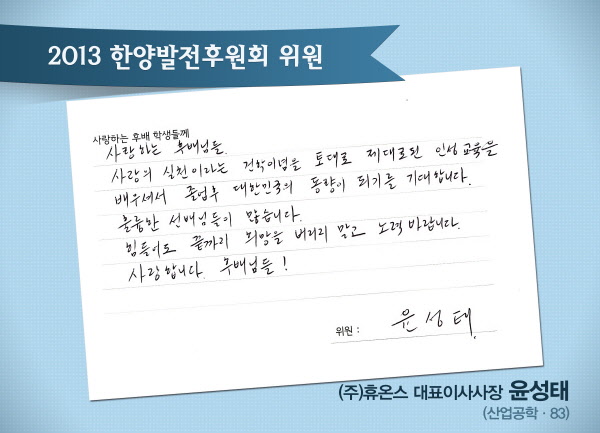 2013 한양발전후원회 위원
사랑하는 후배 학생들께
사랑하는 후배님들.
사랑의 실천이라는 건학이념을 토대로 제대로된 인성교육을
배우셔서 졸업후 대한민국의 동량이 되기를 기대합니다.
훌륭한 선배님들이 많습니다.
힘들어도 끝까지 희망을 버리지 말고 노력바랍니다.
사랑합니다. 후배님들!
위원 : 윤성태
(주)휴온스 대표이사사장 윤성태
(산업공학 · 83)